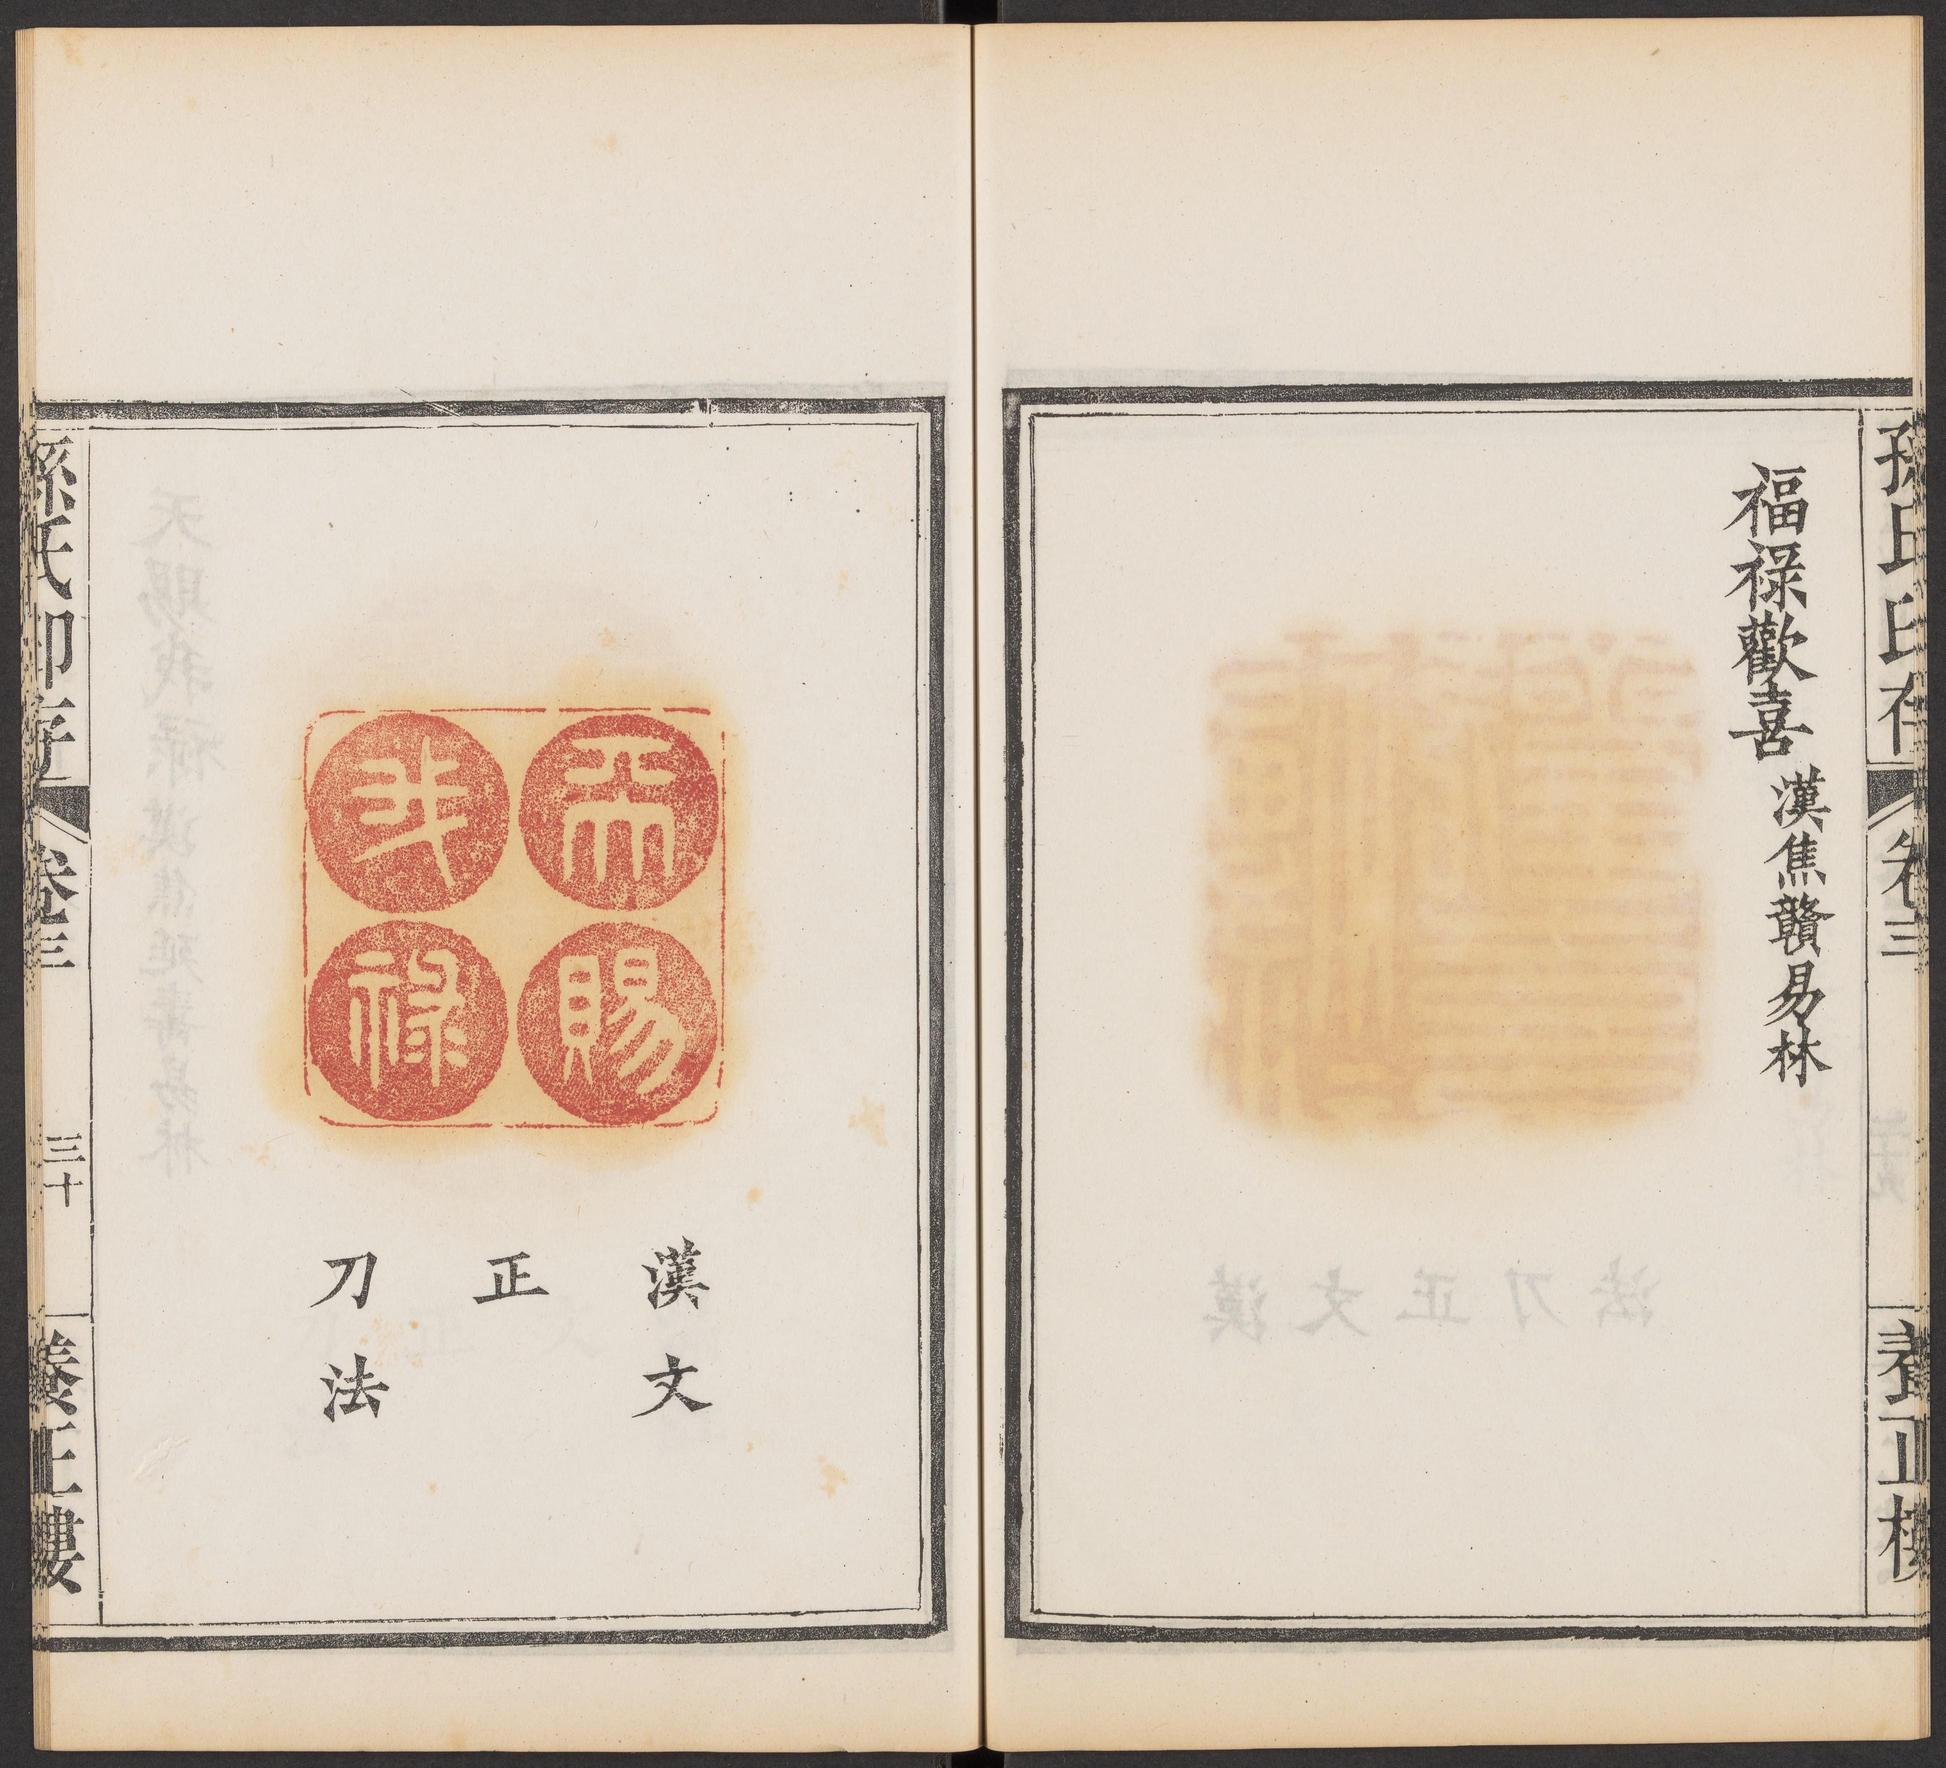 孫氏印存
卷三
養正樓
福祿歡喜 漢焦贛易林
天賜
我祿
漢文
正
刀法
孫氏印存
卷三
三十
養正樓